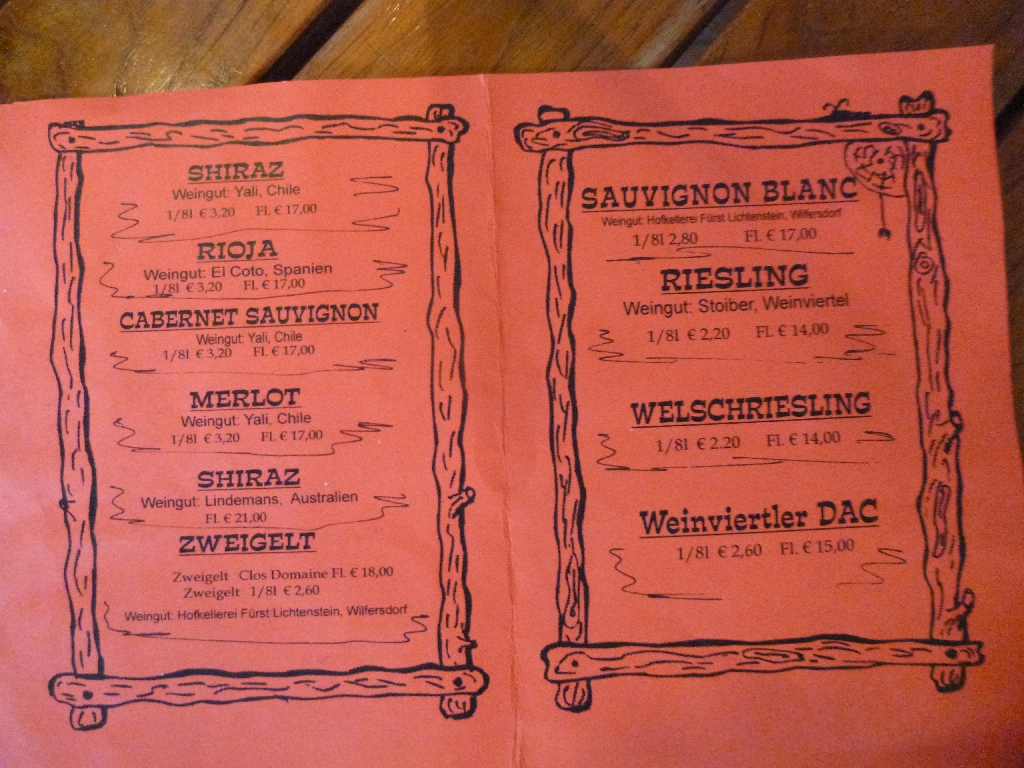 SHIRAZ
Weingut: Yali, Chile
1/8l € 3,20 Fl. € 17,00
RIOJA
Weingut: El Coto, Spanien
1/8l € 3,20 Fl. € 17,00
CABERNET SAUVIGNON
Weingut: Yali, Chile
1/8l € 3,20 Fl. € 17,00
MERLOT
Weingut: Yali, Chile
1/8l € 3,20 Fl. € 17,00
SHIRAZ
Weingut: Lindemans, Australien
Fl. € 21,00
ZWEIGELT
Zweigelt Clos Domaine Fl. € 18,00
Zweigelt 1/8l € 2,60
Weingut: Hofkellerei Fürst Lichtenstein, Wilfersdorf
SAUVIGNON BLANC
Weingut: Hofkellerei Fürst Lichtenstein, Wilfersdorf
1/8l 2,80 Fl. € 17,00
RIESLING
Weingut: Stoiber, Weinviertel
1/8l € 2,20 Fl. € 14,00
WELSCHRIESLING
1/8l € 2.20 Fl. € 14,00
Weinviertler DAC
1/8l € 2,60 Fl. € 15,00